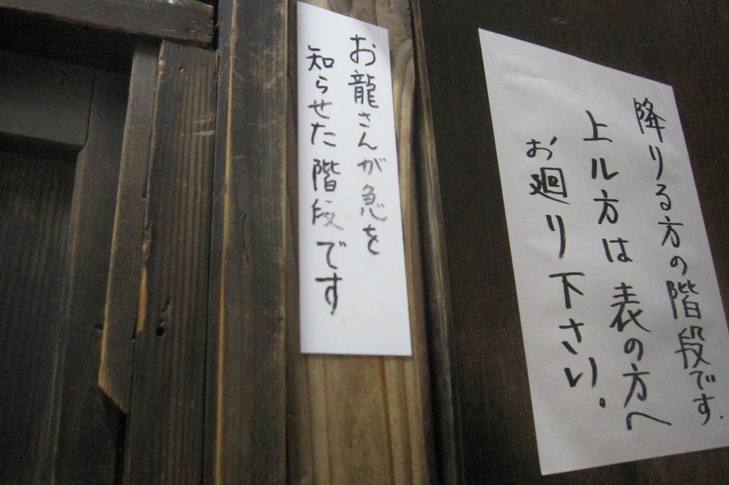 降りる方の階段です.
上ル方は表の方へ
お廻り下さい。
お龍さんが急を
知らせた階段です